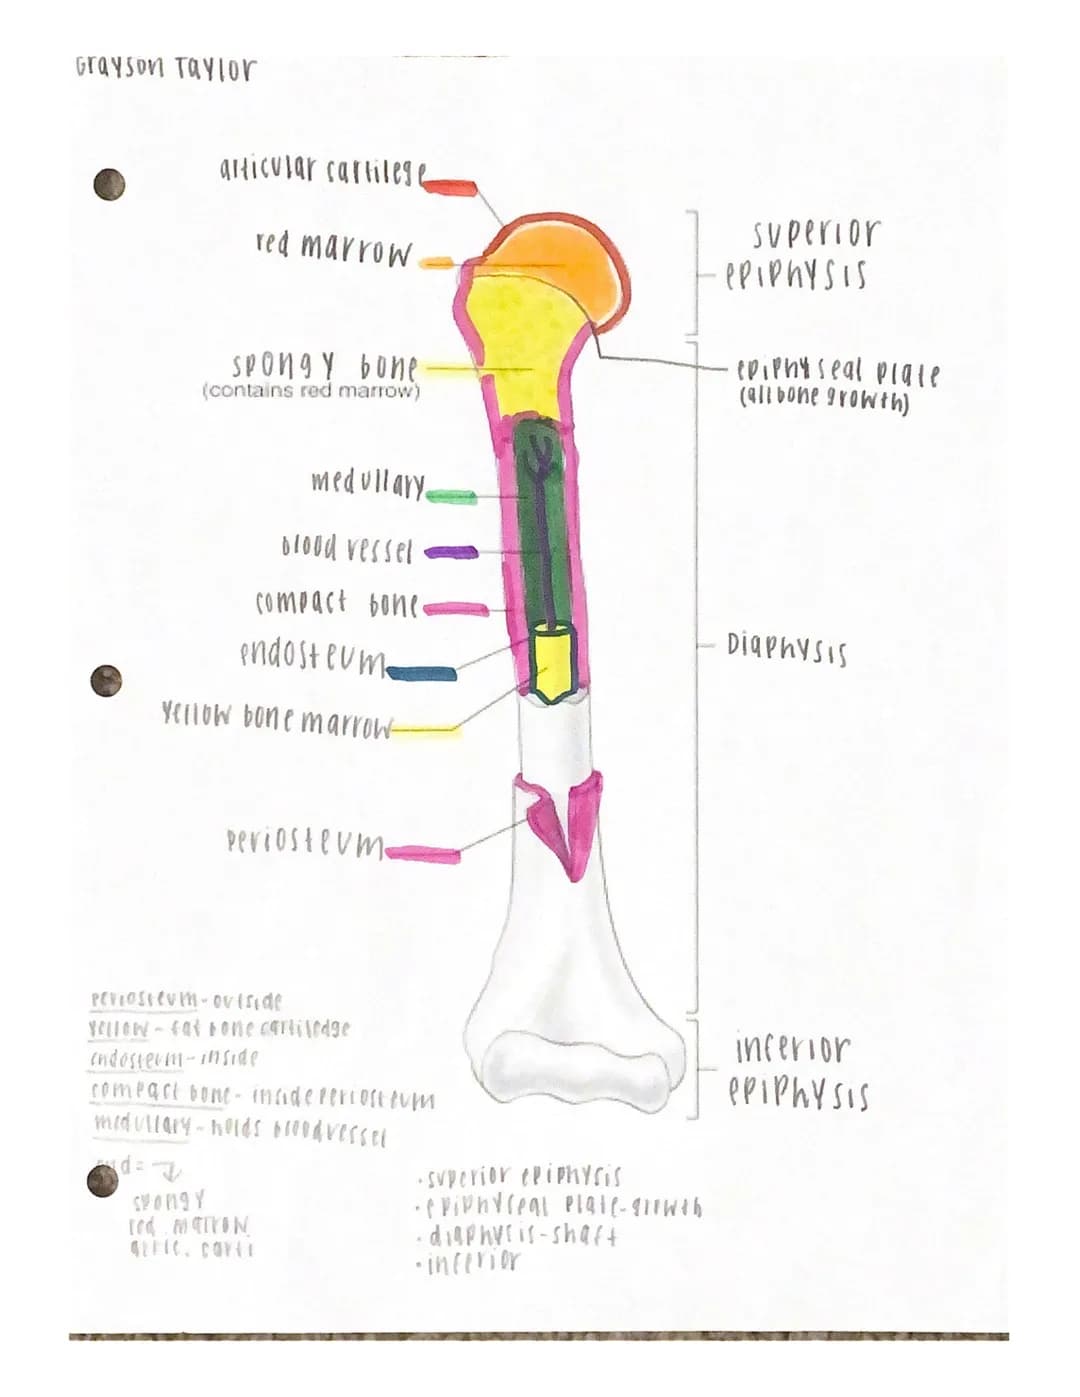 Grayson Taylor
articular cartilege
red marrow
spongy bone
(contains red marrow)
medullary
blood vessel
compact bone
endosteum
yellow bone marrow
periosteum
superior
epiphysis
epiphyseal plate
(all bone growth)
Diaphysis
inferior
epiphysis
periosteum - outside
yellow - fat bone cartiledge
endosteum - inside
compact bone - inside periosteum
medullary - holds blood vessel
end =
spongy
red marrow
artic. carti
• superior epiphysis
• epiphyseal plate - growth
• diaphysis - shaft
• inferior